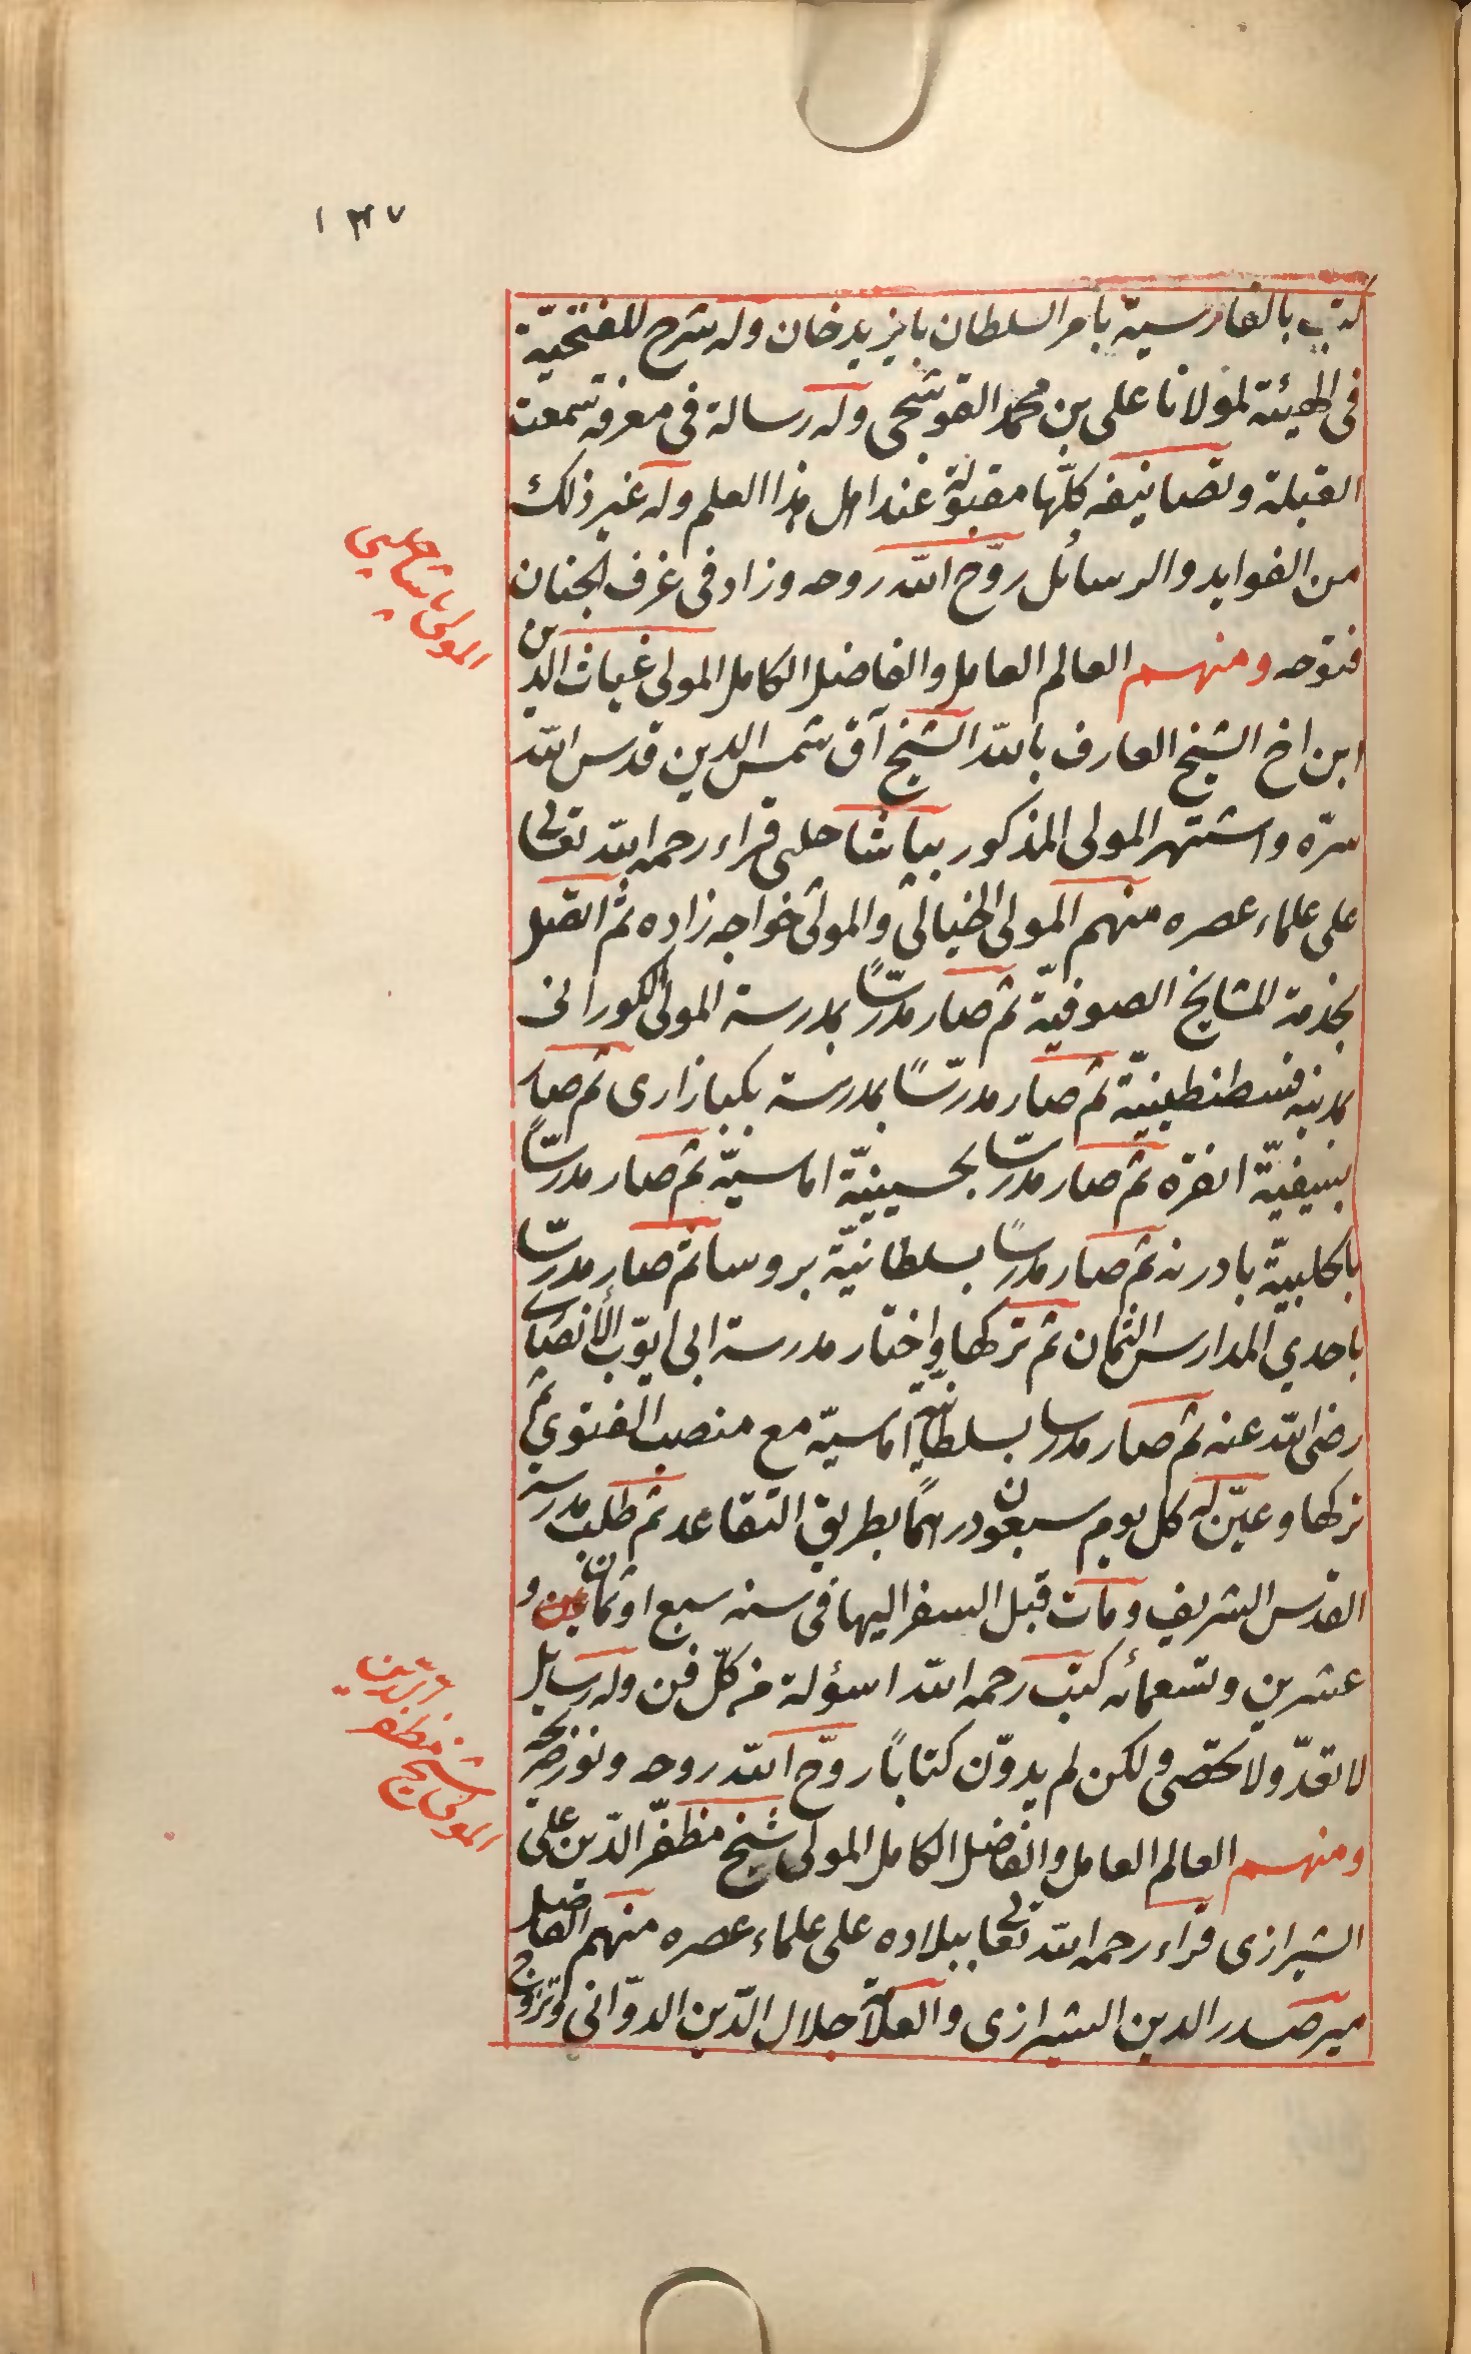 ١٣٧
كتب بالفارسية بامر السلطان بايزيد خان وله شرح للفتحيّة
فى الهيئة لمولانا على بن محمد القوشجى وله رسالة فى معرفة سمت
القبلة وتصانيفه كلّها مقبولة عند اهل هذا العلم وله غير ذلك
من الفوايد والرسائل روّح اللّه روحه وزاد فى غرف الجنان
فتوحه ومنهم العالم العامل والفاضل الكامل المولى غياث الدين
ابن اخ الشيخ العارف باللّه الشيخ آق شمس الدين قدس اللّه
سرّه واشتهر المولى المذكور بباشا چلبى قراء رحمه اللّه تعالى
على علماء عصره منهم المولى الخيالى والمولى خواجه زاده ثم اتصل
بخدمة المشايخ الصوفيّة ثم صار مدرّسًا بمدرسة المولى الكورانى
بمدينه قسطنطينيّة ثم صار مدرّسًا بمدرسة بكبازارى ثم صار
بسيفيّة انقره ثم صار مدرّسا بحسينيّة اماسيّه ثم صار مدرّسًا
بالحلبيّة بادرنه ثم صار مدرسًا بسلطانيّة بروسا ثم صار مدرّسا
باحدي المدارس الثمان ثم تركها واختار مدرسة ابى ايّوب الأنصارى
رضى اللّه عنه ثم صار مدرسا بسلطانيّة اماسيّه مع منصب الفتوى ثم
تركها وعيّن له كل يوم سبعون درهمًا بطريق التقاعد ثم طلب مدرسة
القدس الشريف ومات قبل السفر اليها فى سنه سبع او ثمان و
عشرين وتسعمائه كتب رحمه اللّه اسؤلة من كلّ فن وله رسايل
لا تعدّ ولا تحصى ولكن لم يدوّن كتابًا روّح اللّه روحه ونور ضريحه
ومنهم العالم العامل والفاضل الكامل المولى شيخ مظفّر الدّين على
الشيرازى قراء رحمه اللّه تعالى ببلاده على علماء عصره منهم الفاضل
مير صدر الدين الشيرازى والعلامة جلال الدّين الدوّانى وتزوج
المولى باشا چلبى
المولى شيخ مظفر الدّين